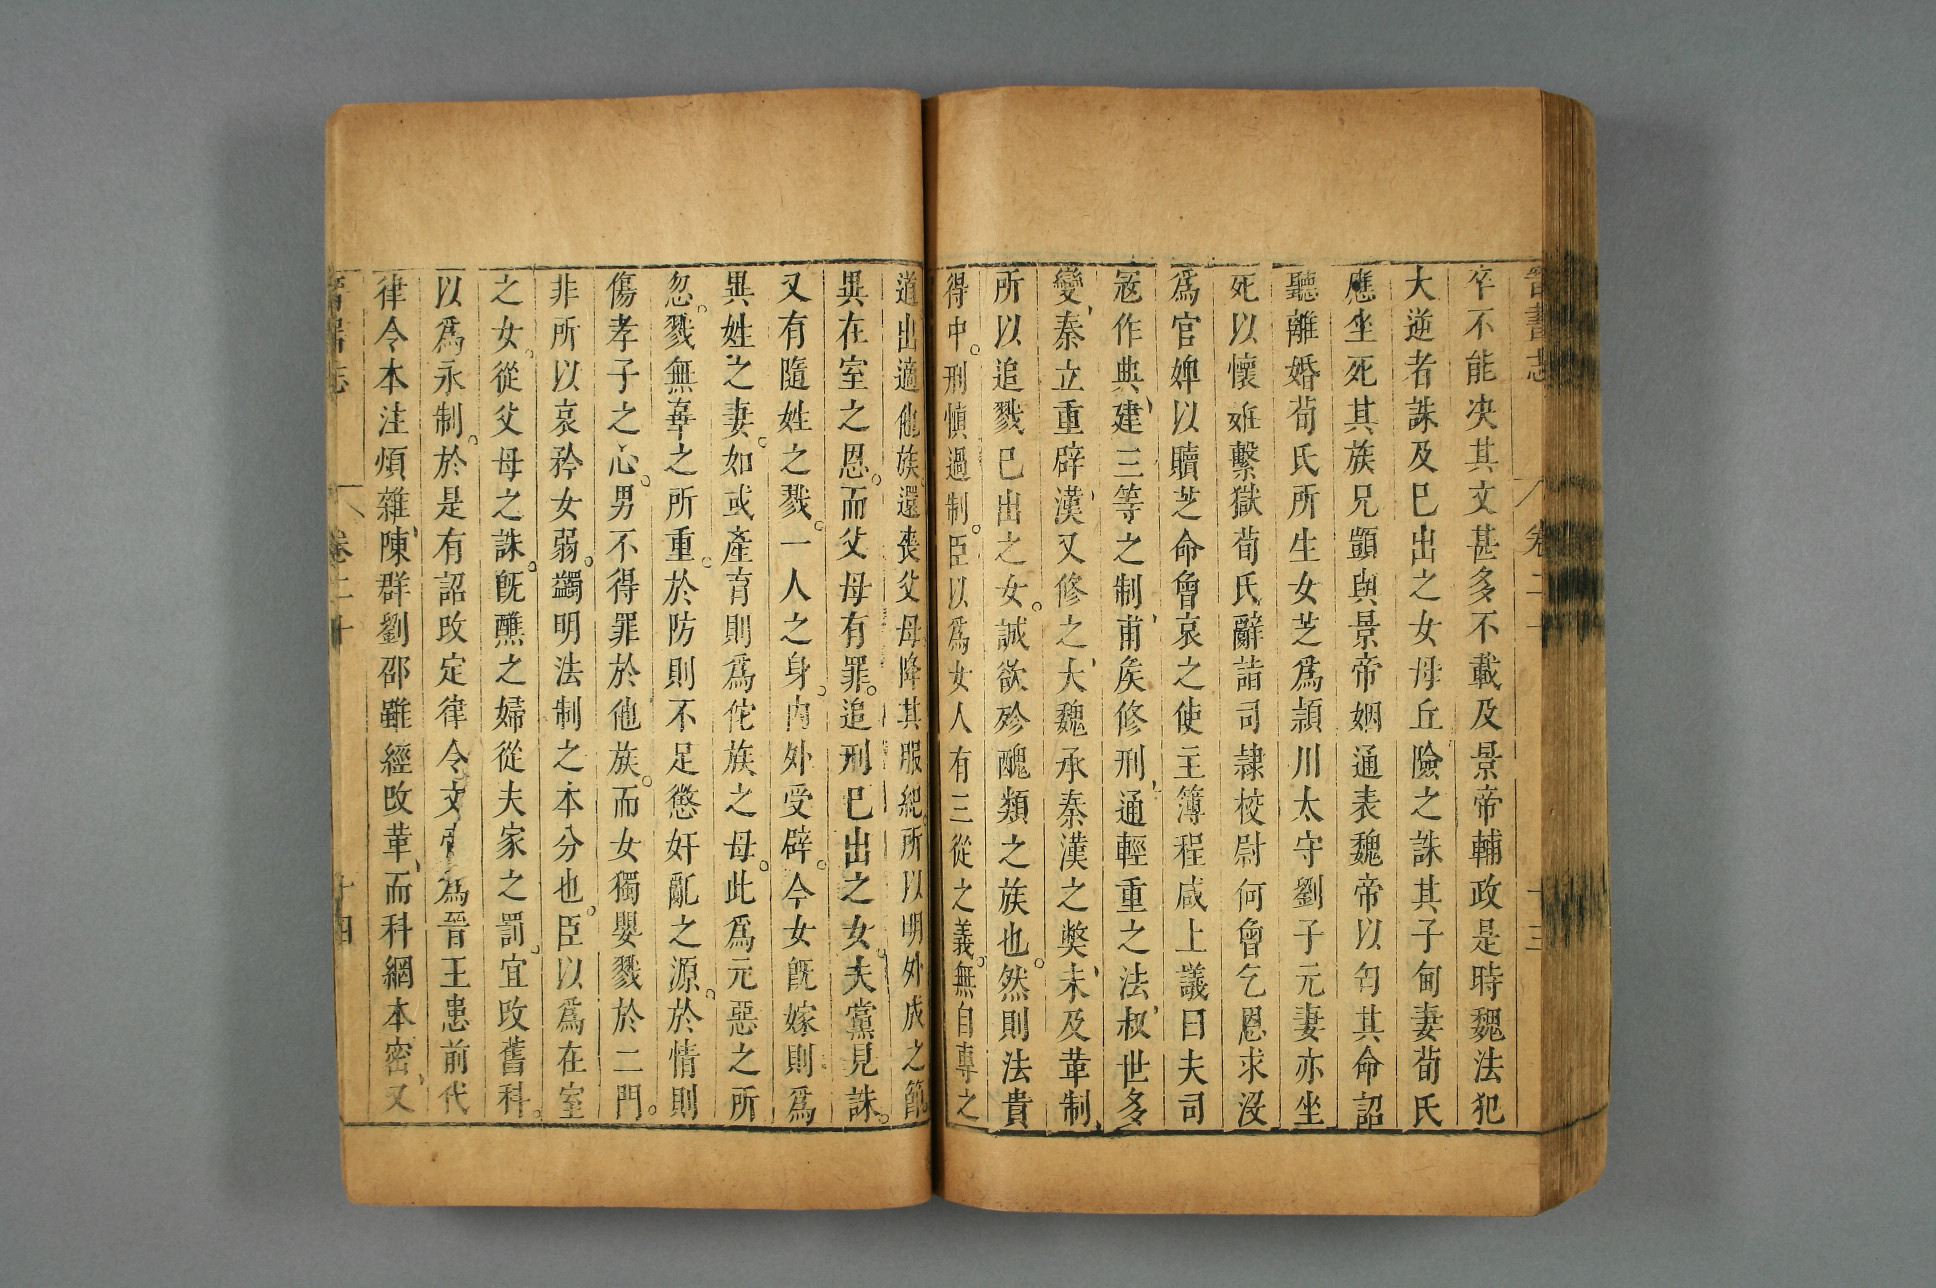 晉書志 卷二十 十三
卒不能决其文甚多不載及景帝輔政是時魏法犯
大逆者誅及已出之女母丘險之誅其子甸妻荀氏
應坐死其族兄顗與景帝姻通表魏帝以匄其命詔
聽離婚荀氏所生女芝爲潁川太守劉子元妻亦坐
死以懷姙繫獄荀氏辭詣司隷校尉何曾乞恩求沒
爲官婢以贖芝命曾哀之使主簿程咸上議曰夫司
宼作典、建三等之制、甫矦修刑、通輕重之法、叔世多
變、秦立重辟、漢又修之、大魏承秦漢之獘、未及革制、
所以追戮已出之女。誠欲殄醜類之族也。然則法貴
得中。刑愼過制。臣以爲女人有三從之義。無自專之
道。出適他族。還喪父母。降其服紀。所以明外成之節。
異在室之恩。而父母有罪。追刑已出之女。夫黨見誅。
又有隨姓之戮。一人之身。内外受辟。今女旣嫁則爲
異姓之妻。如或產育則爲佗族之母。此爲元惡之所
忽。戮無辜之所重。於防則不足懲奸亂之源。於情則
傷孝子之心。男不得罪於他族。而女獨嬰戮於二門。
非所以哀矜女弱。蠲明法制之本分也。臣以爲在室
之女。從父母之誅。旣醮之婦從夫家之罰。宜改舊科。
以爲永制。於是有詔改定律令文帝爲晉王患前代
律令本注煩雜、陳群劉邵雖經改革、而科網本密、又
晉書志 卷二十 十四